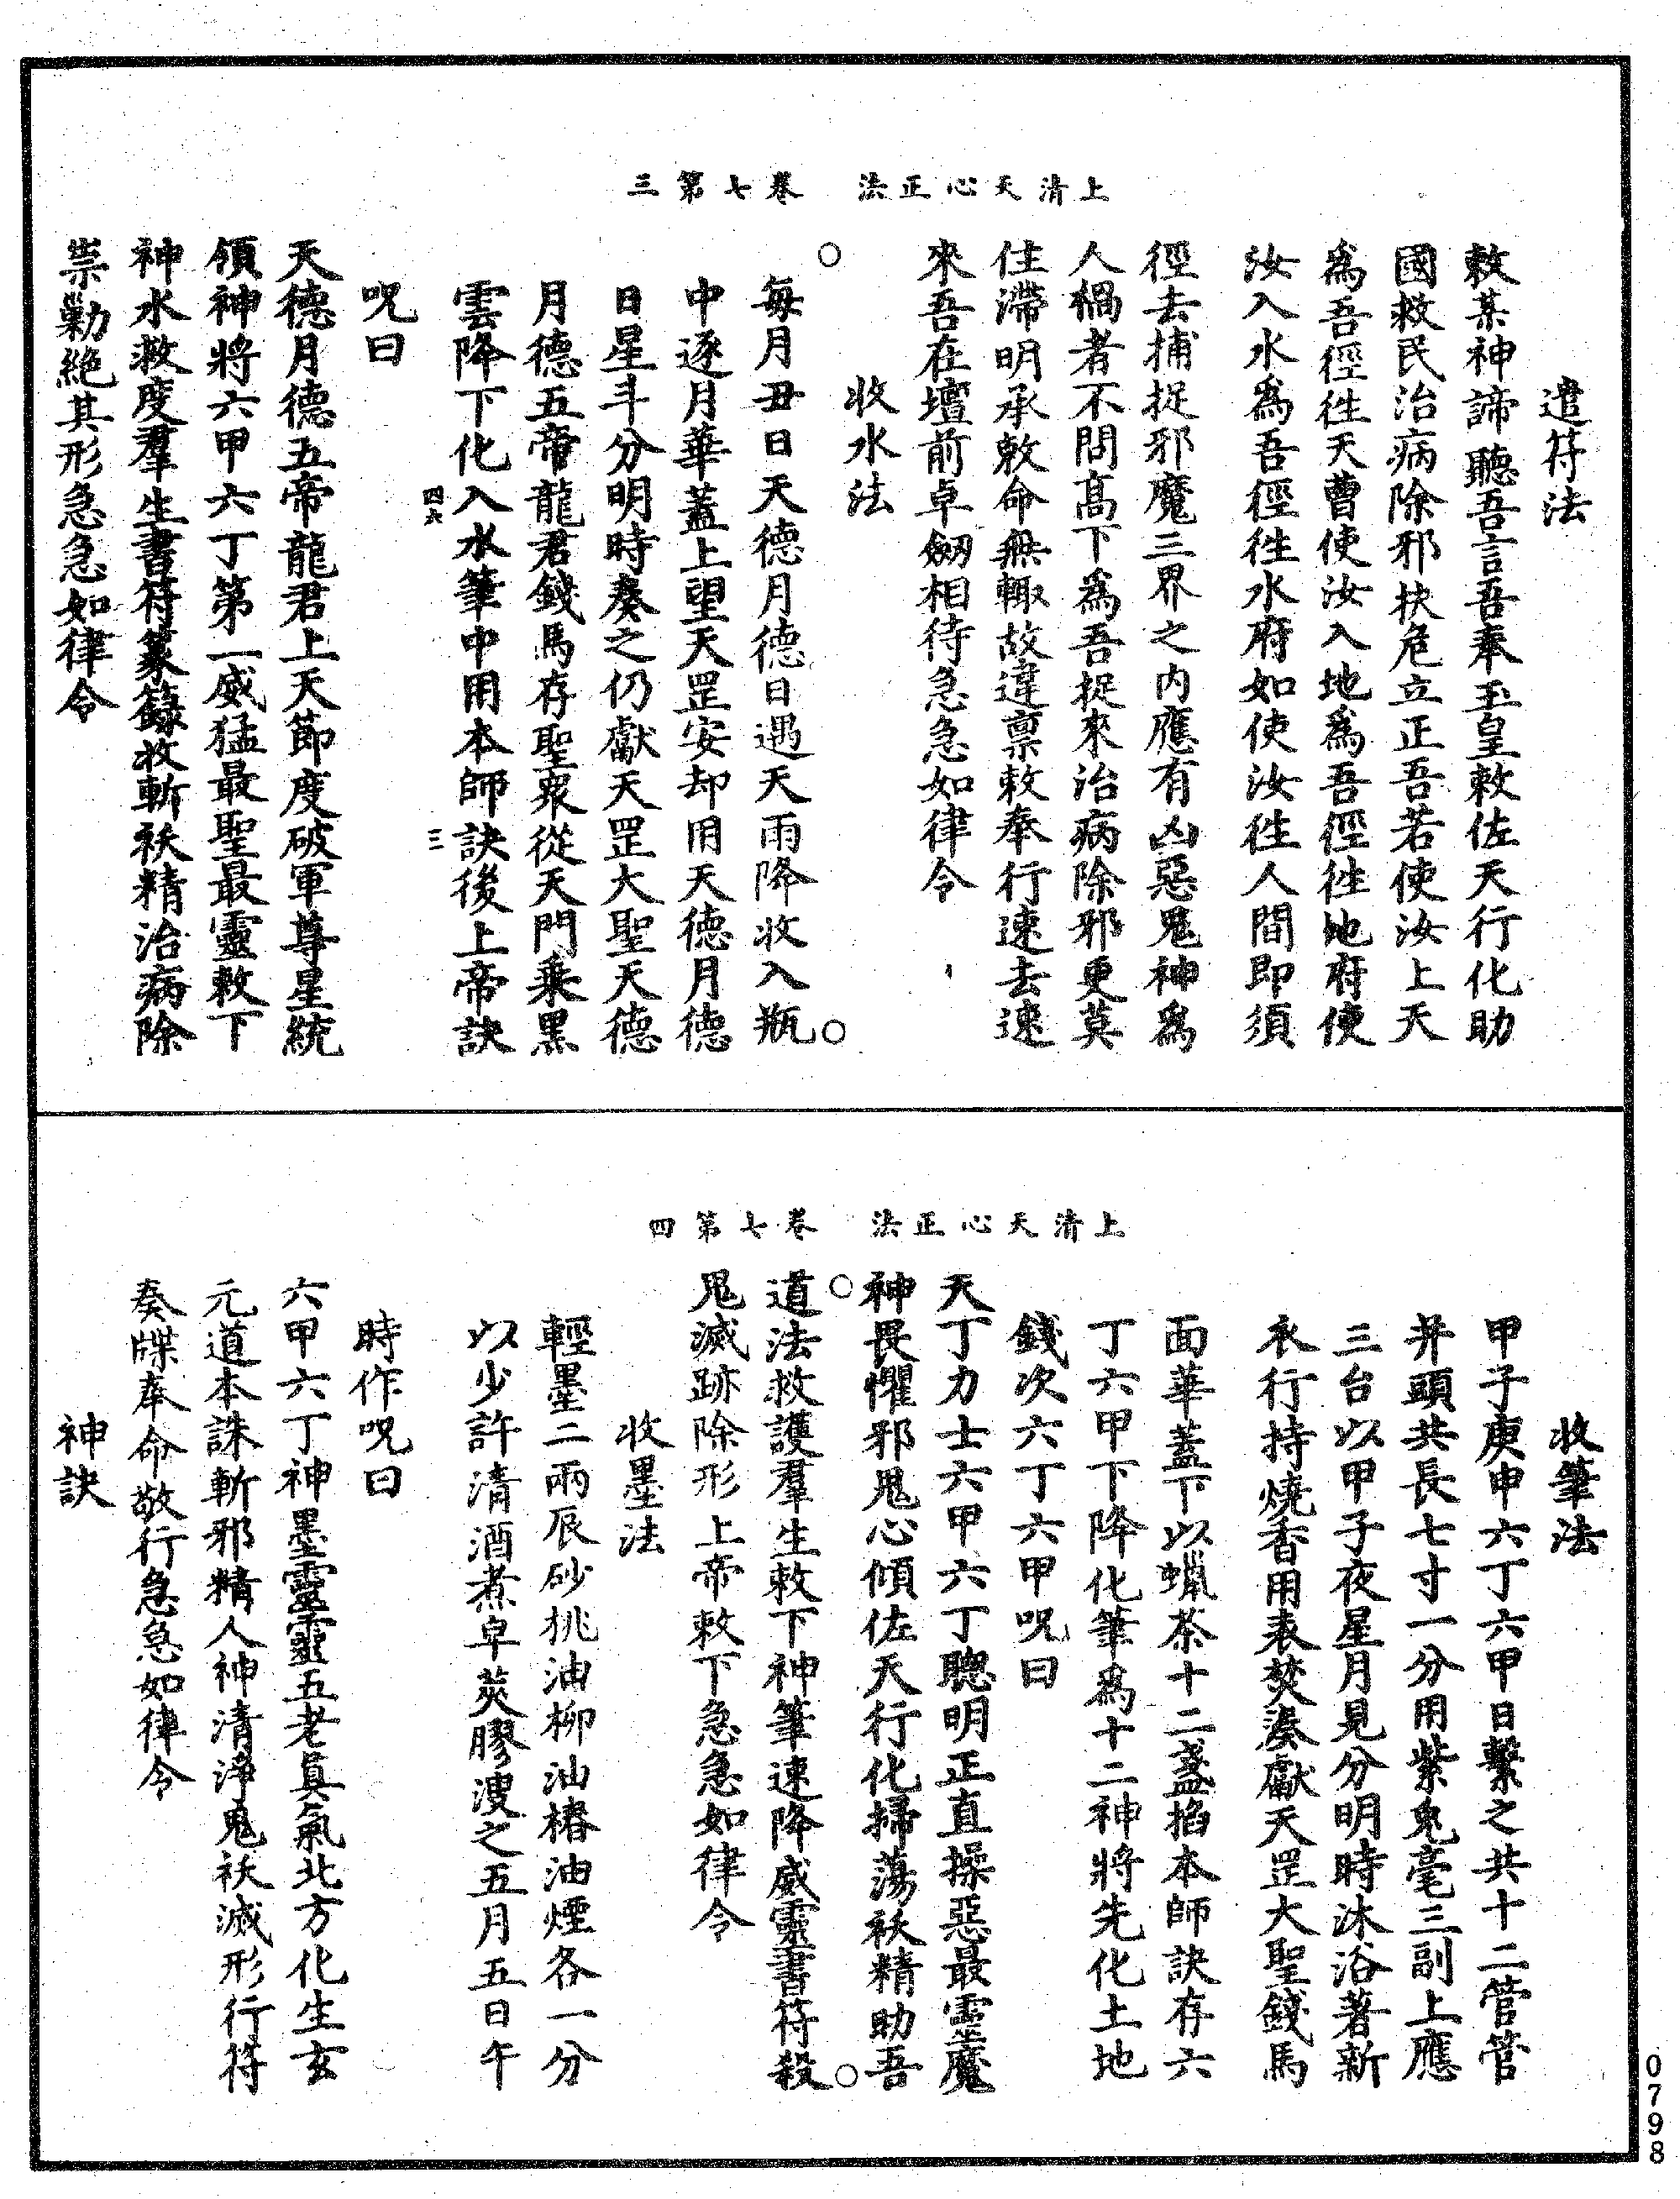 上清天心正法　卷七第三
遣符法
敕某神諦聽吾言吾奉玉皇敕佐天行化助
國救民治病除邪扶危立正吾若使汝上天
爲吾徑往天曹使汝入地爲吾徑往地府使
汝入水爲吾徑往水府如使汝往人間即須
徑去捕捉邪魔三界之内應有凶惡鬼神爲
人禍者不問高下爲吾捉來治病除邪更莫
住滯明承敕命無輒故違禀敕奉行速去速
來吾在壇前卓劒相待急急如律令
收水法
每月丑日天德月德日遇天雨降收入瓶
中逐月華蓋上望天罡安却用天德月德
日星斗分明時奏之仍獻天罡大聖天德
月德五帝龍君錢馬存聖衆從天門乘黑
雲降下化入水筆中用本師訣後上帝訣
四六
三
呪曰
天德月德五帝龍君上天節度破軍尊星統
領神將六甲六丁第一威猛最聖最靈敕下
神水救度羣生書符篆籙收斬祅精治病除
祟勦絕其形急急如律令
上清天心正法　卷七第四
收筆法
甲子庚申六丁六甲日繫之共十二管管
并頭共長七寸一分用紫兔毫三副上應
三台以甲子夜星月見分明時沐浴著新
衣行持燒香用表焚湊獻天罡大聖錢馬
面華蓋下以蠟茶十二盞掐本師訣存六
丁六甲下降化筆爲十二神將先化土地
錢次六丁六甲呪曰
天丁力士六甲六丁聰明正直操惡最靈魔
神畏懼邪鬼心傾佐天行化掃蕩祅精助吾
道法救護羣生敕下神筆速降威靈書符殺
鬼滅跡除形上帝敕下急急如律令
收墨法
輕墨二兩辰砂桃油柳油椿油煙各一分
以少許清酒煮皁莢膠溲之五月五日午
時作呪曰
六甲六丁神墨靈靈五老眞氣北方化生玄
元道本誅斬邪精人神清淨鬼祅滅形行符
奏牒奉命敬行急急如律令
神訣
0798